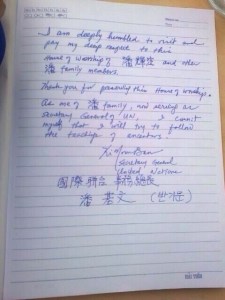 I am deeply humbled to visit and
pay my deep respect to this
House of Worship of 潘輝 and other
潘 family members.
Thank you for preserving this House of worship.
As one of 潘 family, now serving as
Secretary General of UN, I commit
myself that I will try to follow
the teachings of ancestors.
Ki Moon Ban
Secretary General
United Nations
國際聯合 事務總長
潘基文 (반기문)